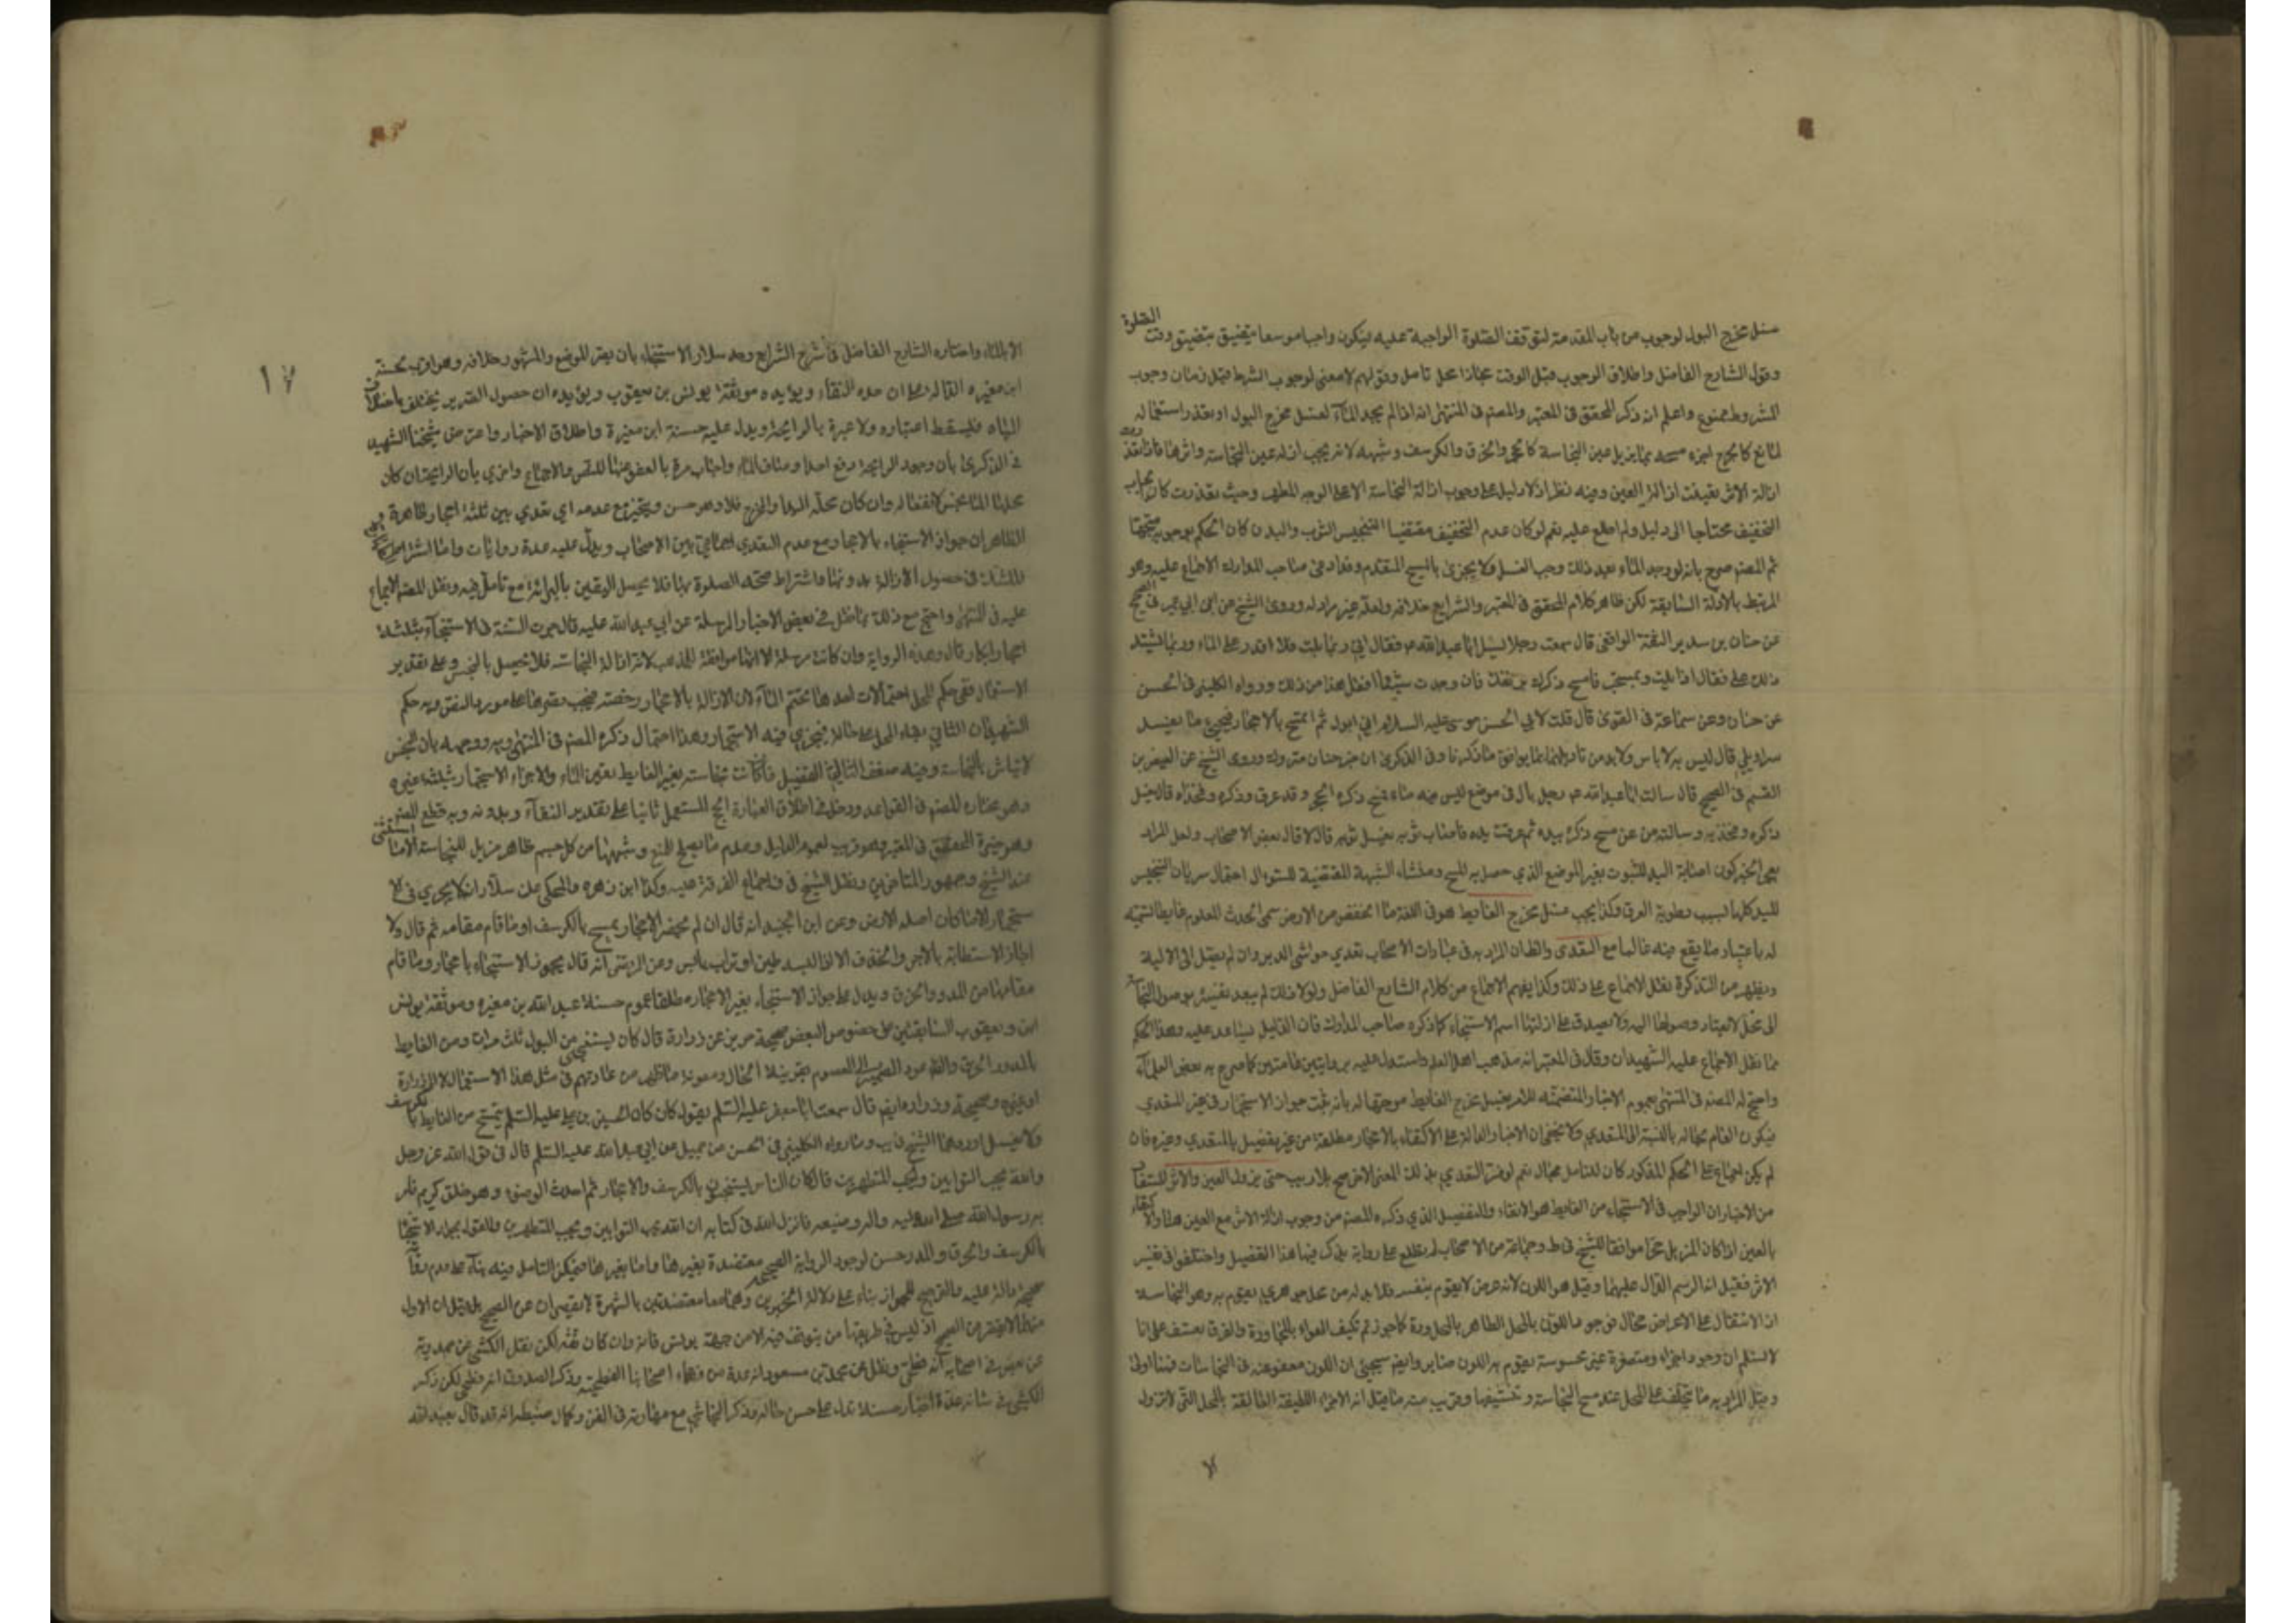 غسل مخرج البول لوجوب من باب المقدمة لتوقف الصلوة الواجبة عليه فيكون واجبا موسعا يتضيق بتضيق وقت الصلوة
وقول الشارح الفاضل واطلاق الوجوب قبل الوقت مجازا محل تامل وقولهم لا معنى لوجوب الشرط قبل زمان وجوب
المشروط ممنوع واعلم انه ذكر المحقق في المعتبر والمصنف في المنتهى انه اذا لم يجد الماء لغسل مخرج البول او تعذر استعماله
لمانع كالجرح اجزء مسحه بما يزيل عين النجاسة كالحجر والخرق والكرسف وشبهه لانه يجب ازالة عين النجاسة واثرها فاذا تعذرت
ازالة الاثر بقيت ازالة العين وفيه نظر اذ لا دليل على وجوب ازالة النجاسة الا على الوجه المطهر وحيث تعذرت كان ايجاب
التخفيف محتاجا الى دليل ولم اطلع عليه نعم لو كان عدم التخفيف مقتضيا لتنجيس الثوب والبدن كان الحكم بوجوبه متجها
ثم المصنف صرح بانه لو وجد الماء بعد ذلك وجب الغسل ولا يجزئ بالمسح المتقدم وقد ادعى صاحب المدارك الاجماع عليه وهو
المرتبط بالادلة السابقة لكن ظاهر كلام المحقق في المعتبر والشرايع خلافه ولعله غير مراد له وروى الشيخ عن ابن ابي عمير في الصحيح
عن حنان بن سدير الثقة الواقفي قال سمعت رجلا سئل ابا عبد الله ع فقال اني ربما بلت فلا اقدر على الماء وربما اشتد
ذلك علي فقال اذا بلت وتمسحت فامسح ذكرك بريقك فان وجدت شيئا فقل هذا من ذلك ورواه الكليني في الحسن
عن حنان وعن سماعة في القوى قال قلت لابي الحسن موسى عليه السلم اني ابول ثم اتمسح بالاحجار فيجئ منا ما يفسد
سراويلي قال ليس به لا باس ولا بد من تاويلهما بما يوافق ما ذكرنا وفي الذكرى ان خبر حنان متروك وروى الشيخ عن العيص بن
القسم في الصحيح قال سالت ابا عبد الله ع عن رجل بال في موضع ليس فيه ماء فمسح ذكره بحجر وقد عرق ذكره وفخذاه قال يغسل
ذكره وفخذيه وسالته عن من مسح ذكره بيده ثم عرقت يده فاصاب ثوبه يغسل ثوبه قال لا قال بعض الاصحاب ولعل المراد
بعجز الخبر كون اصابة اليد للثوب بغير الموضع الذي حصل به المسح ومنشاء الشبهة المقتضية للسؤال احتمال سريان التنجيس
لليد كلها بسبب رطوبة العرق وكذا يجب غسل مخرج الغايط هو في اللغة ما انخفض من الارض سمى الحدث المعلوم غايطا لتسميته
له باعتبار ما يقع فيه غالبا مع التعدى والظان المراد به في عبارات الاصحاب تعدي حواشي الدبر وان لم يصل الى الالية
ويظهر من التذكرة نقل الاجماع على ذلك وكذا يفهم الاجماع من كلام الشارح الفاضل ولولا ذلك لم يبعد تفسيره بوصول النجاسة
الى محل لا يعتاد وصولها اليه ولا يصدق على ازالتها اسم الاستنجاء كما ذكره صاحب المدارك فان الدليل يساعد عليه وهذا الحكم
مما نقل الاجماع عليه الشهيدان وقال في المعتبر انه مذهب اهل العلم واستدل عليه بروايتين عاميتين كما صرح به بعض العلماء
واحتج له المصنف في المنتهى بعموم الاخبار المتضمنة للامر بغسل مخرج الغايط موجها له بانه ثبت جواز الاستجمار في غير المتعدي
فيكون العام بحاله بالنسبة الى المتعدي ولا يخفى ان الاخبار الدالة على الاكتفاء بالاحجار مطلقة من غير تفصيل بالمتعدي وغيره فان
لم يكن اجماع على الحكم المذكور كان للتامل مجال نعم لو فسر التعدي بذلك المعنى الاخر صح بلا ريب حتى يزول العين والاثر المستفاد
من الاخبار ان الواجب في الاستنجاء من الغايط هو الانقاء والتفصيل الذي ذكره المصنف من وجوب ازالة الاثر مع العين هنا والاكتفاء
بالعين اذا كان المزيل حجرا موافقا للشيخ في ط وجماعة من الاصحاب لم نطلع على رواية يذكر فيها هذا التفصيل واختلفوا في تفسير
الاثر فقيل انه الرسم الدال عليهما وقيل هو اللون لانه عرض لا يقوم بنفسه فلا بد له من محل جوهري يقوم به وهو النجاسة
اذ الانتقال على الاعراض محال فوجود اللون بالمحل الطاهر بالمجاورة كما جوزتم تكيف الهواء بالمجاورة والفرق تعسف على انا
لا نسلم ان وجود اجزاء ومتصغرة غير محسوسة يقوم به اللون ضاير وايضا سيجيئ ان اللون معفو عنه في النجاسات فهنا اولى
وقيل المراد به ما يتخلف على المحل عند مسح النجاسة وتنشيفها وقريب منه ما قيل انه الاجزاء اللطيفة العالقة بالمحل التي لا تزول
لا
١٧
الا بالماء واختاره الشارح الفاضل في شرح الشرايع وحد سلار الاستنجاء بان يصر الموضع والمشهور خلافه وهو اقرب لحسنة
ابن مغيرة الدالة على ان حده النقاء ويؤيده موثقة يونس بن يعقوب ويؤيده ان حصول الصرير يختلف باختلاف
المياه فليسقط اعتباره ولا عبرة بالرايحة ويدل عليه حسنة ابن مغيرة واطلاق الاخبار واعترض شيخنا الشهيد
في الذكرى بان وجود الرايحة رفع احد اوصاف الماء واجاب مرة بالعفو عنها للنص والاجماع واخرى بان الرايحة ان كان
محلها الماء نجس لانفعاله وان كان محله اليد او المخرج فلا وهو حسن ويتخير مع عدمه اي تعدي بين ثلثة احجار طاهرة و
الظاهر ان جواز الاستنجاء بالاحجار مع عدم التعدي اجماعي بين الاصحاب ويدل عليه عدة روايات واما اشتراط
للشك في حصول الازالة بدونها واشتراط صحة الصلوة بها فلا يحصل اليقين بالبرائة مع تامل فيه ونقل المصنف الاجماع
عليه في المنتهى واحتج مع ذلك بما نقل في بعض الاخبار المرسلة عن ابي عبد الله عليه قال جرت السنة في الاستنجاء بثلثة
احجار ابكار قال وهذه الرواية وان كانت مرسلة الا انها موافقة للمذهب لانه ازالة النجاسة فلا تحصل بالنجس وعلى تقدير
الاستعمال ففي حكم المحل احتمالات احدها تحتم الماء لان الازالة بالاحجار رخصة فيجب قصرها على مورد النص وبه حكم
الشهيدان الثاني بقاء المحل على حاله فيجزي فيه الاستجمار وهذا احتمال ذكره المصنف في المنتهى ووجهه بان النجس
لا يتاثر بالنجاسة وفيه ضعف الثالث التفصيل فان كانت نجاسته بغير الغايط تعين الماء والا اجزاء الاستجمار بثلثة غيره
وهو مختار المصنف في القواعد ودخل في اطلاق العبارة الحجر المستعمل ثانيا على تقدير النقاء وبدونه وبه قطع المصنف
وهو خيرة المحقق في المعتبر وهو قريب لعموم الدليل وعدم ما يصلح للمنع وشبهها من كل جسم طاهر مزيل للنجاسة الا ما استثنى
عند الشيخ وجمهور المتاخرين ونقل الشيخ في ف اجماع الفرقة عليه وكذا ابن زهره والمحكي عن سلار انه لا يجزي في الا
ستجمار الا ما كان اصله الارض وعن ابن الجنيد انه قال ان لم يحضر الاحجار يمسح بالكرسف او ما قام مقامه ثم قال ولا
اختار الاستطابة بالاجر والخزف الا اذا لابسه طين او تراب يابس وعن المرتضى انه قال يجوز الاستنجاء باحجار وما قام
مقامها من المدر والخرق ويدل على جواز الاستنجاء بغير الاحجار مطلقا عموم حسنة عبد الله بن مغيره وموثقة يونس
ابن يعقوب السابقتين وعلى خصوص البعض صحيحة حريز عن زرارة قال كان يستنجي من البول ثلث مرات ومن الغايط
بالمدر والخرق والظ عود الضمير الى المعصوم بقرينة الحال ومعونة ما ظهر من عادتهم في مثل هذا الاستعمال لا الى زرارة
او غيره وصحيحة زرارة ايضا قال سمعت ابا جعفر عليه السلم يقول كان الحسين بن علي عليه السلم يتمسح من الغايط بالكرسف
ولا يغسل اوردهما الشيخ في يب وما رواه الكليني في الحسن عن جميل عن ابي عبد الله عليه السلم قال في قول الله عز وجل
والله يحب التوابين ويحب المتطهرين قال كان الناس يستنجون بالكرسف والاحجار ثم احدث الوضوء وهو خلق كريم فامر
به رسول الله صلى الله عليه واله وصنيعه فانزل الله في كتابه ان الله يحب التوابين ويحب المتطهرين والقول بجواز الاستنجاء
بالكرسف والخرق والمدر حسن لوجود الرواية الصحيحة معتضدة بغيرها واما بغيرها فيمكن التامل فيه بناء على عدم
صحيحة دالة عليه والترجيح للجواز بناء على دلالة الخبرين وهما معا معتضدتين بالشهرة لا يقصران عن الصحيح بل قيل ان الاول
منهما لا يقصر عن الصحيح اذ ليس في طريقها من يتوقف فيه الا من جهة يونس فانه وان كان ثقة لكن نقل الكشي عن حمدويه
عن بعض اصحابه انه فطحي ونقل عن محمد بن مسعود انه عده من فقهاء اصحابنا الفطحية وذكر الصدوق انه فطحي لكن ذكر
الكشي في شانه عدة اخبار حسنة تدل على حسن حاله وذكر النجاشي مع مهارته في الفن وكمال ضبطه انه قد قال بعبد الله